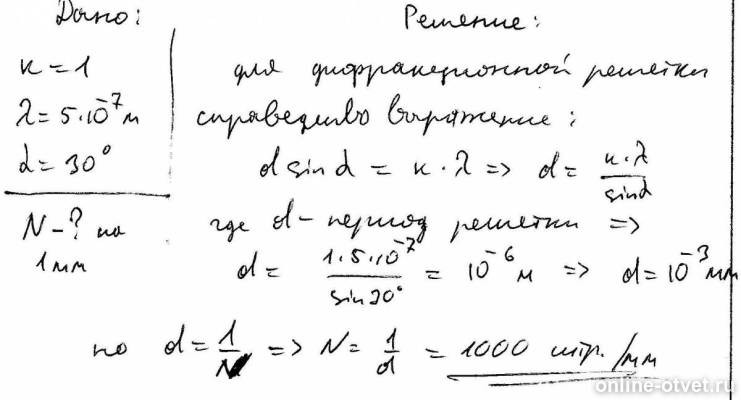 Дано:
к = 1
λ = 5·10⁻⁷ м
α = 30°
N - ? на
1 мм
Решение:
для дифракционной решетки
справедливо выражение:
d sin α = к · λ => d = к·λ / sin α
где d - период решетки =>
d = 1·5·10⁻⁷ / sin 30° = 10⁻⁶ м => d = 10⁻³ мм
но d = 1/N => N = 1/d = 1000 штр./мм
online-otvet.ru